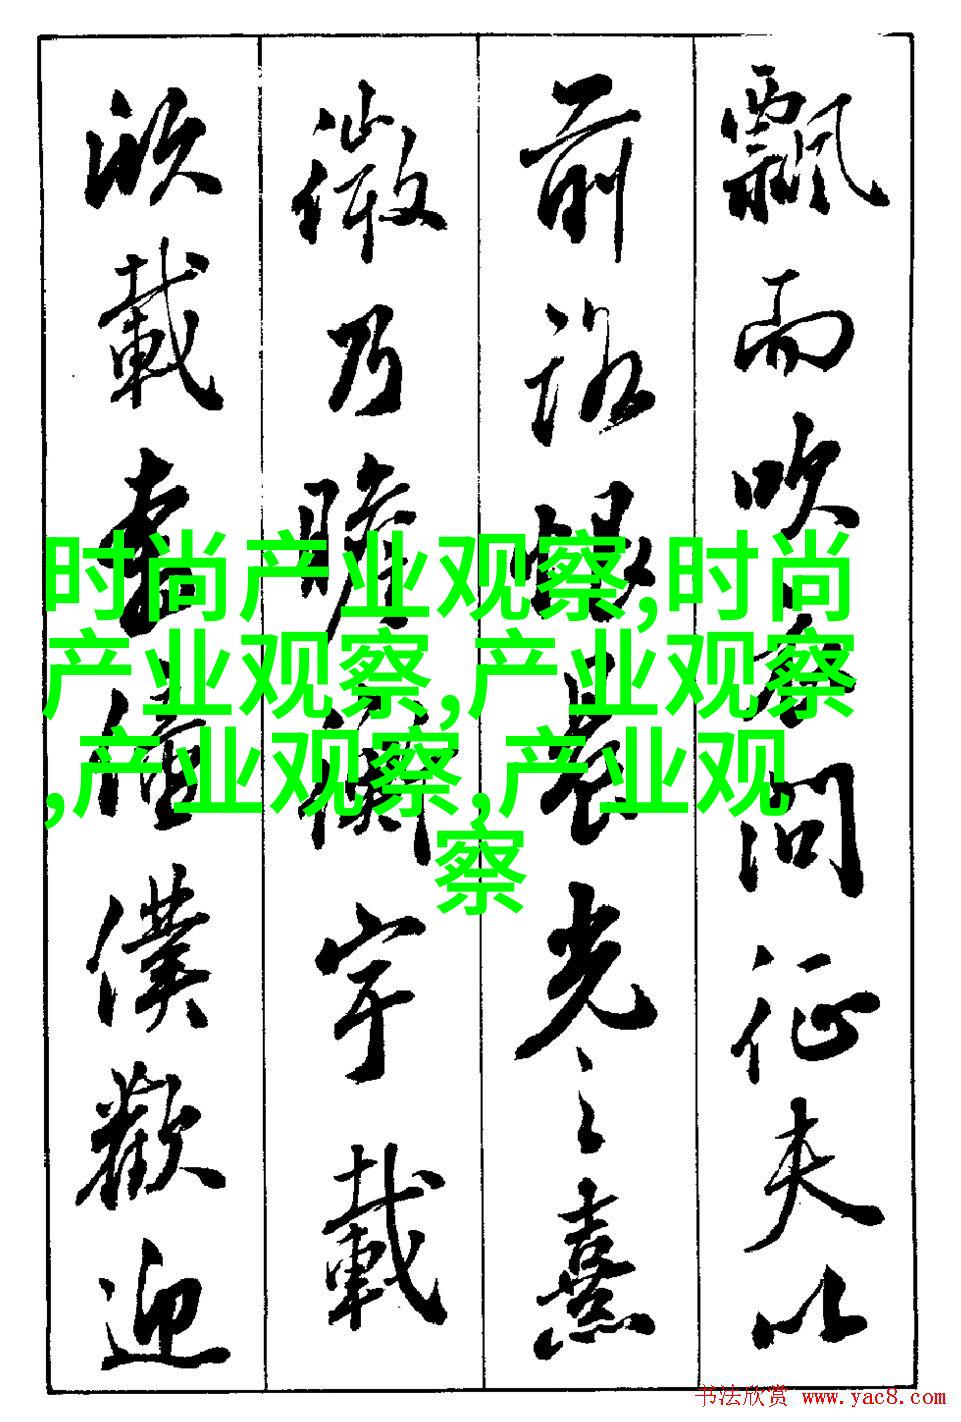 飄而吹衣問征夫以
前路恨晨光之熹
微乃瞻衡宇載
欣載奔僮僕歡迎
时尚产业观察,时尚
产业观察,产业观察
,产业观察,产业观
察
书法欣赏 www.yac8.com